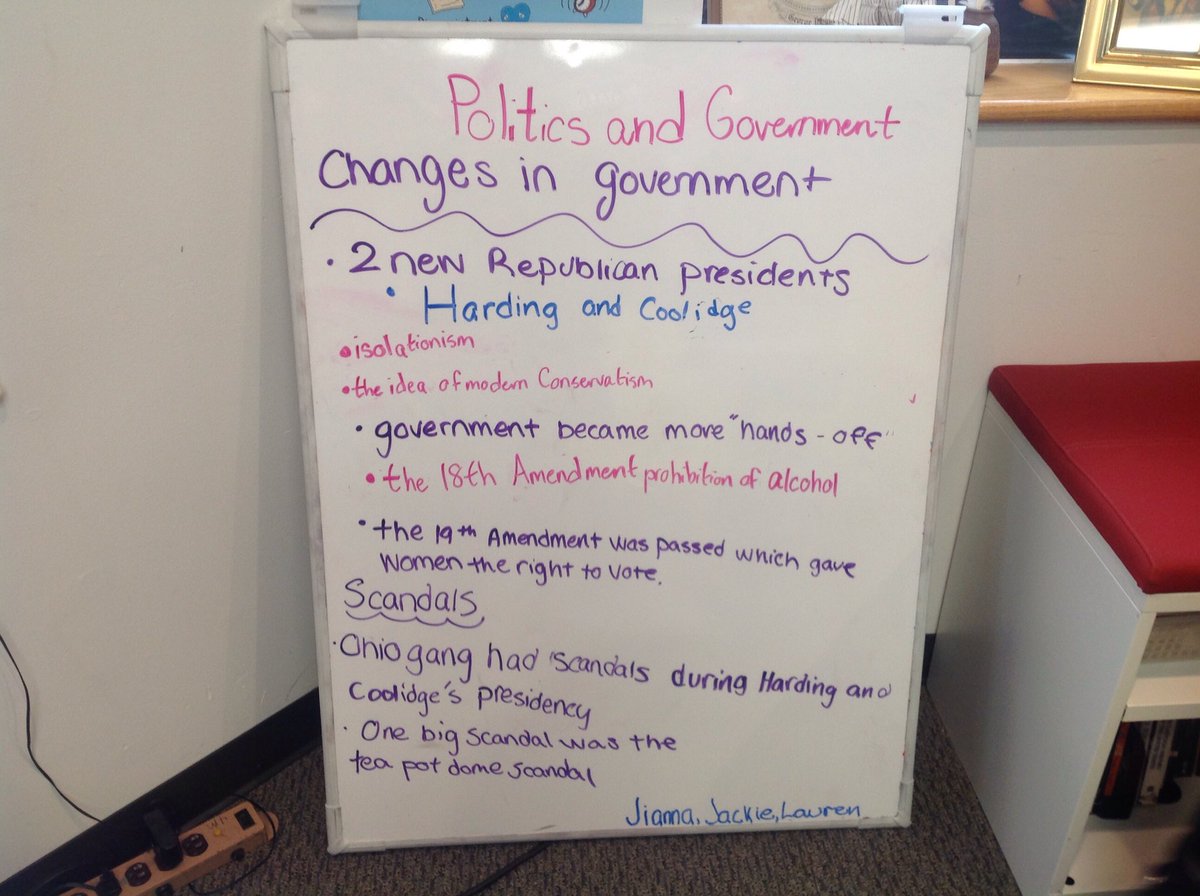 Politics and Government
Changes in government
• 2 new Republican presidents
• Harding and Coolidge
• isolationism
• the idea of modern Conservatism
• government became more "hands-off"
• the 18th Amendment prohibition of alcohol
• the 19th Amendment was passed which gave
women the right to vote.
Scandals
• Ohio gang had scandals during Harding and
Coolidge's presidency
• One big scandal was the
tea pot dome scandal
Jianna, Jackie, Lauren